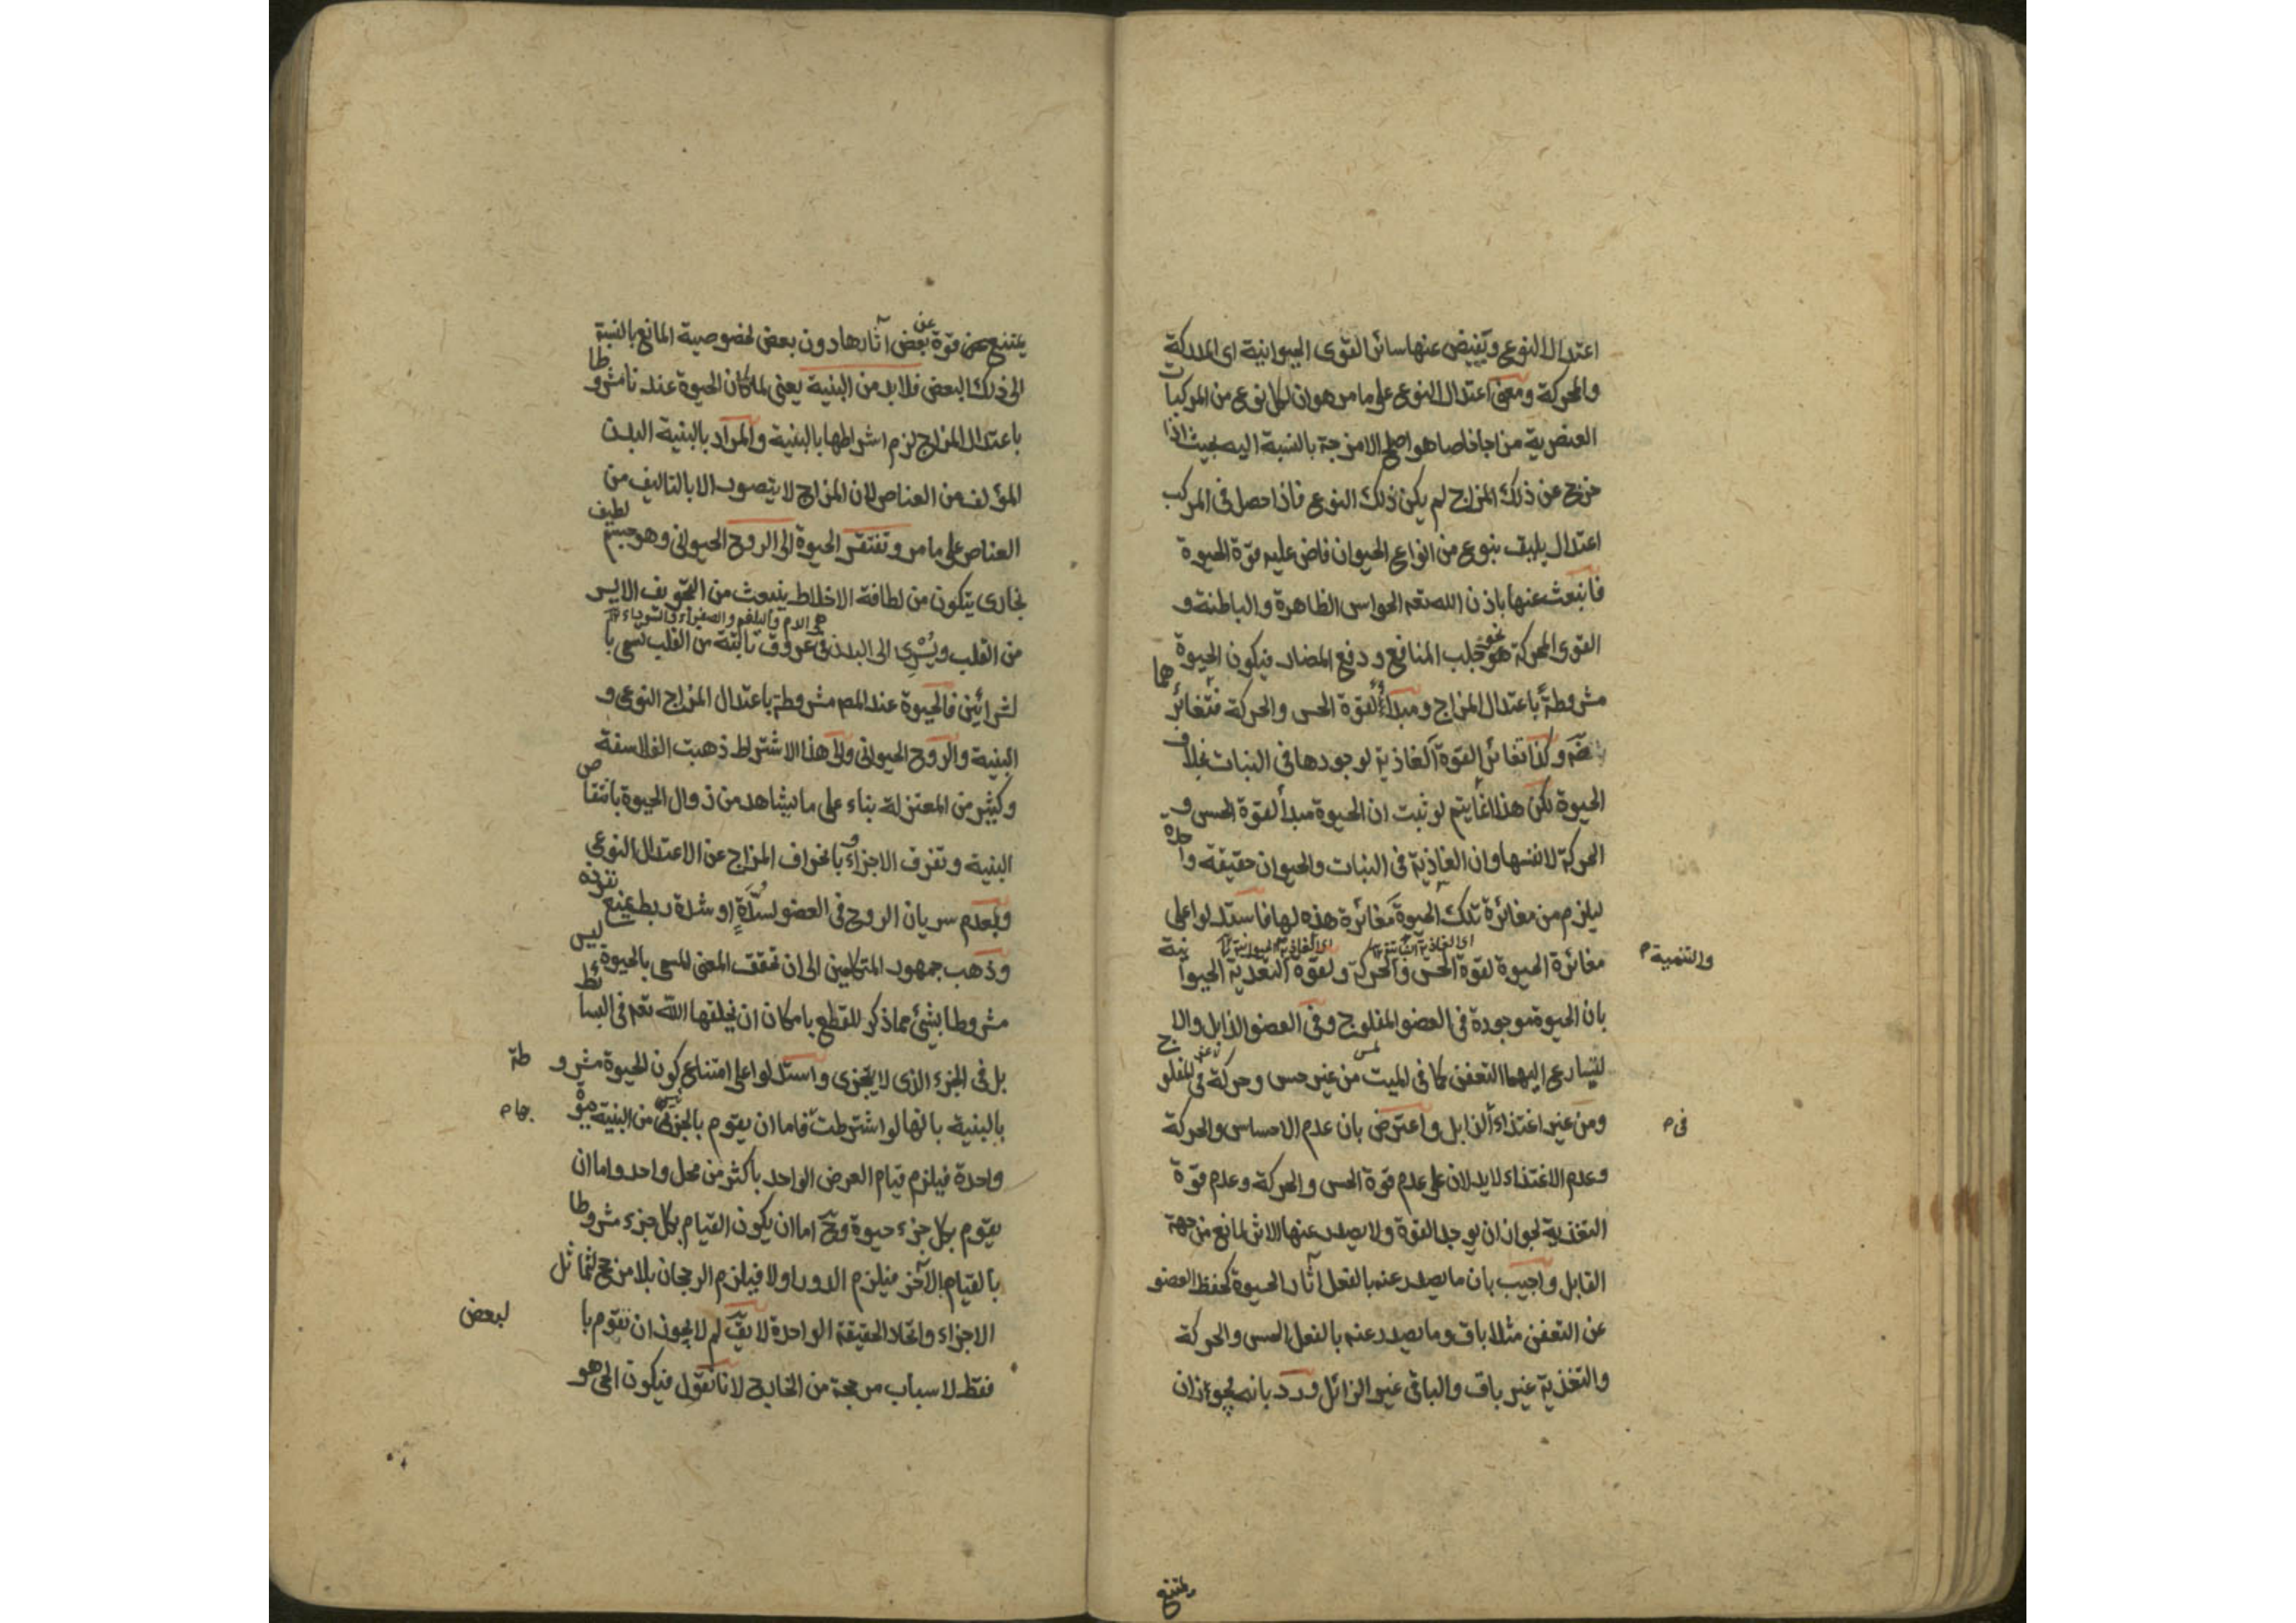 اعتدال النوع وتفيض عنها سائر القوى الحيوانية اى المدركة
والمحركة ومعنى اعتدال النوع على ما مر هو ان لكل نوع من المركبات
العنصرية مزاجا خاصا هو اصلح الامزجة بالنسبة اليه بحيث اذا
خرج عن ذلك المزاج لم يكن ذلك النوع فاذا حصل فى المركب
اعتدال يليق بنوع من انواع الحيوان فاض عليه قوة الحيوة
فانبعث عنها باذن الله تعه الحواس الظاهرة والباطنة و
القوى المحركة نحو جلب المنافع و دفع المضار فيكون الحيوة
مشروطة باعتدال المزاج ومبدأ لقوة الحس والحركة فتغائرهما
وكذا تغائر القوة الغاذية لوجودها فى النبات بخلاف
الحيوة لكن هذا انما يتم لو ثبت ان الحيوة مبدأ لقوة الحس و
الحركة لا نفسها وان الغاذية فى النبات والحيوان حقيقة واحدة
ليلزم من مغائرة تلك الحيوة مغائرة هذه لها فاستدلوا على
مغائرة الحيوة لقوة الحس والحركة ولقوة التغذية الحيوانية
والتنمية م
بان الحيوة موجودة فى العضو المفلوج وفى العضو الذابل والا
لتسارع اليهما التعفن كما فى الميت من غير حس وحركة فى المفلوج
ومن غير اغتذاء الذابل واعترض بان عدم الاحساس والحركة
فى م
وعدم الاغتذاء لا يدلان على عدم قوة الحس والحركة وعدم قوة
التغذية لجواز ان يوجد القوة ولا يصدر عنها الاثر لمانع من جهة
القابل واجيب بان ما يصدر عنه بالفعل آثار الحيوة كحفظ العضو
عن التعفن مثلا باق وما يصدر عنه بالفعل الحس والحركة
والتغذية غير باق والباقى غير الزائل ورد بانه يجوز ان
يمتنع
يمتنع عن قوة بعض آثارها دون بعض لخصوصية المانع بالنسبة
الى ذلك البعض فلا بد من البنية يعنى لما كان الحيوة عندنا مشروطا
باعتدال المزاج لزم اشراطها بالبنية والمراد بالبنية البدن
المؤلف من العناصر لان المزاج لا يتصور الا بالتاليف من
العناصر على ما مر وتفتقر الحيوة الى الروح الحيوانى وهو جسم لطيف
بخارى يتكون من لطافة الاخلاط ينبعث من التجويف الايسر
هى الدم والبلغم والصفراء والسوداء
من القلب ويسرى الى البدن فى عروق نابتة من القلب تسمى با
لشرائين فالحيوة عند المصم مشروطة باعتدال المزاج النوعى و
البنية والروح الحيوانى والى هذا الاشتراط ذهبت الفلاسفة
وكثير من المعتزلة بناء على ما يشاهد من زوال الحيوة بانتقاص
البنية وتفرق الاجزاء وبانحراف المزاج عن الاعتدال النوعى
وبعدم سريان الروح فى العضو لسدة او شدة ربط يمنع نفوذه
وذهب جمهور المتكلمين الى ان تحقق المعنى المسمى بالحيوة ليس
مشروطا بشئ مما ذكر للقطع بامكان ان يخلقها الله تعه فى البسائط
بل فى الجزء الذى لا يتجزى واستدلوا على امتناع كون الحيوة مشروطة
بالبنية بانها لو اشترطت فاما ان يقوم بالجزئين من البنية حيوة
واحدة فيلزم قيام العرض الواحد باكثر من محل واحد واما ان
يقوم بكل جزء حيوة وح اما ان يكون القيام بكل جزء مشروطا
بالقيام بالآخر فيلزم الدور اولا فيلزم الرجحان بلا مرجح لتماثل
الاجزاء واتحاد الحقيقة الواحدة لا يقّ لم لا يجوز ان تقوم بالبعض
فقط لاسباب مرجحة من الخارج لانا نقول فيكون الحى هو